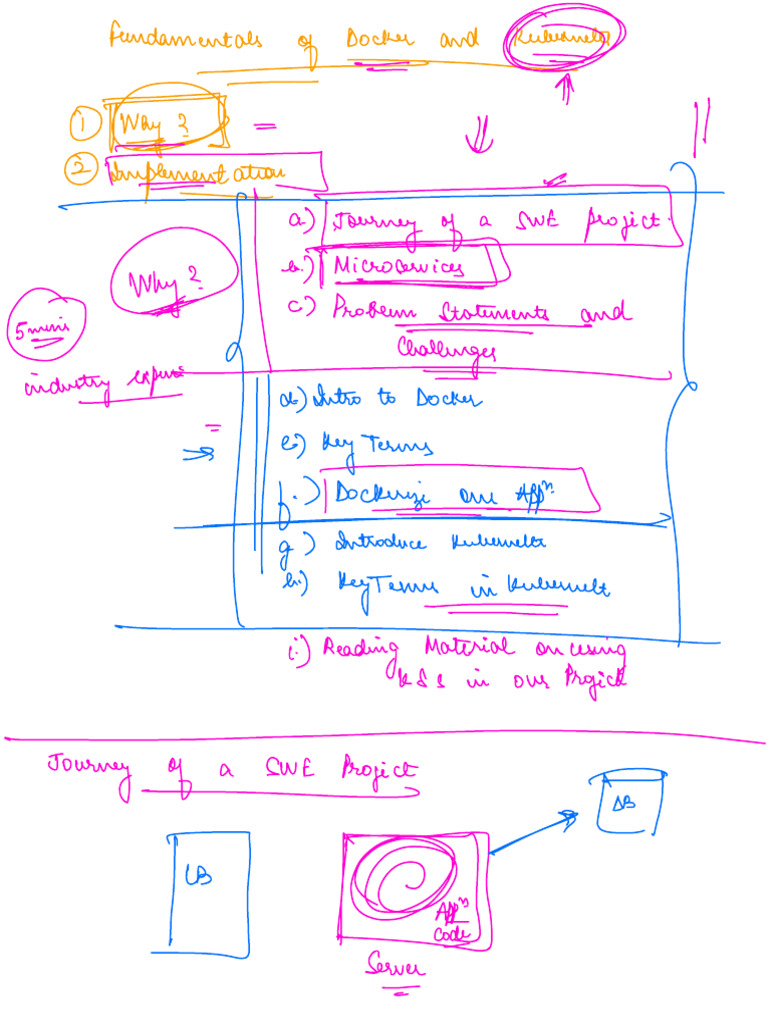 Fundamentals of Docker and Kubernets
① Why? =
② Implementation
a.) Journey of a SWE project.
b.) Microservices
Why?
c.) Problem Statements and
Challenges
5 mins
industry
d.) Intro to Docker
=
e.) Key Terms
f.) Dockerize our Appⁿ
g.) Introduce Kubernets
h.) Key Terms in Kubernets
i.) Reading Material on using
K8s in our Project
Journey of a SWE Project
DB
LB
Appⁿ
Code
Server